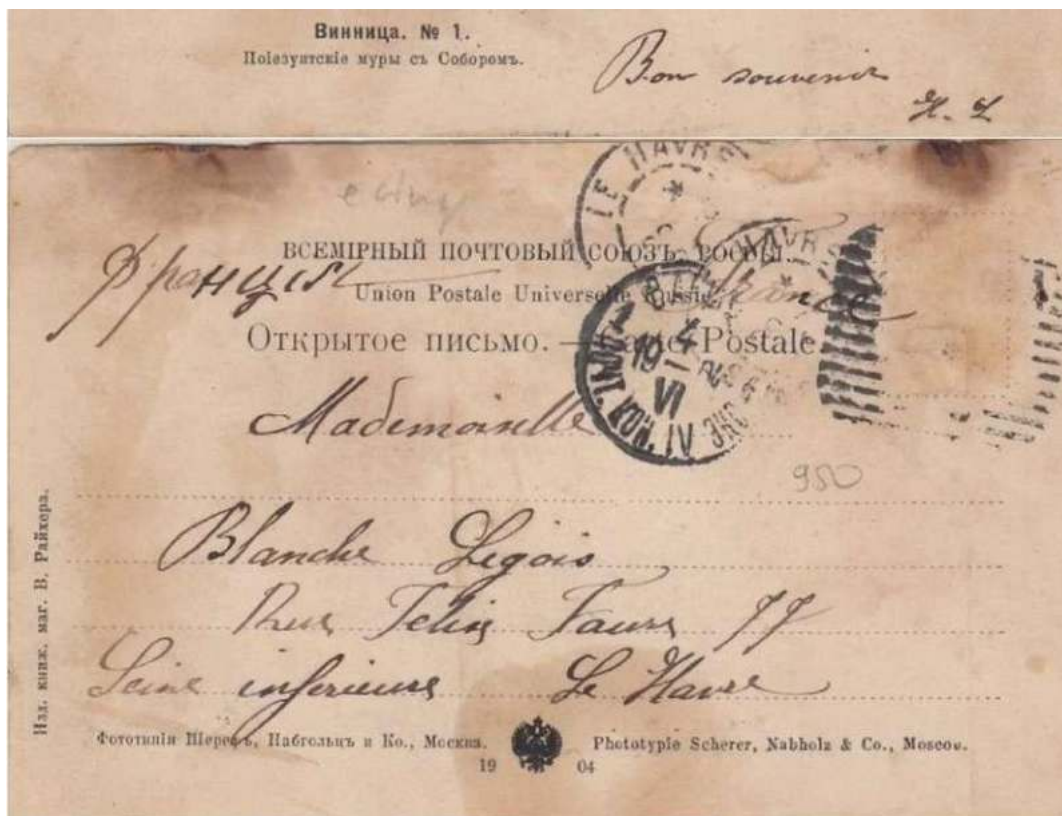 Винница. № 1.
Поіезуитскіе муры съ Соборомъ.
Bon souvenir
H. L
LE HAVRE
ВСЕМІРНЫЙ ПОЧТОВЫЙ СОЮЗЪ. РОССІЯ.
Франція
France
Union Postale Universelle Russie
Открытое письмо. — Carte Postale
4
19
VI
Mademoiselle
950
Blanche Legois
Rue Felix Faure 77
Seine inferieure Le Havre
Изд. книж. маг. В. Райхера.
Фототипія Шереръ, Набгольцъ и Ко., Москва.
Phototypie Scherer, Nabholz & Co., Moscow.
19 04